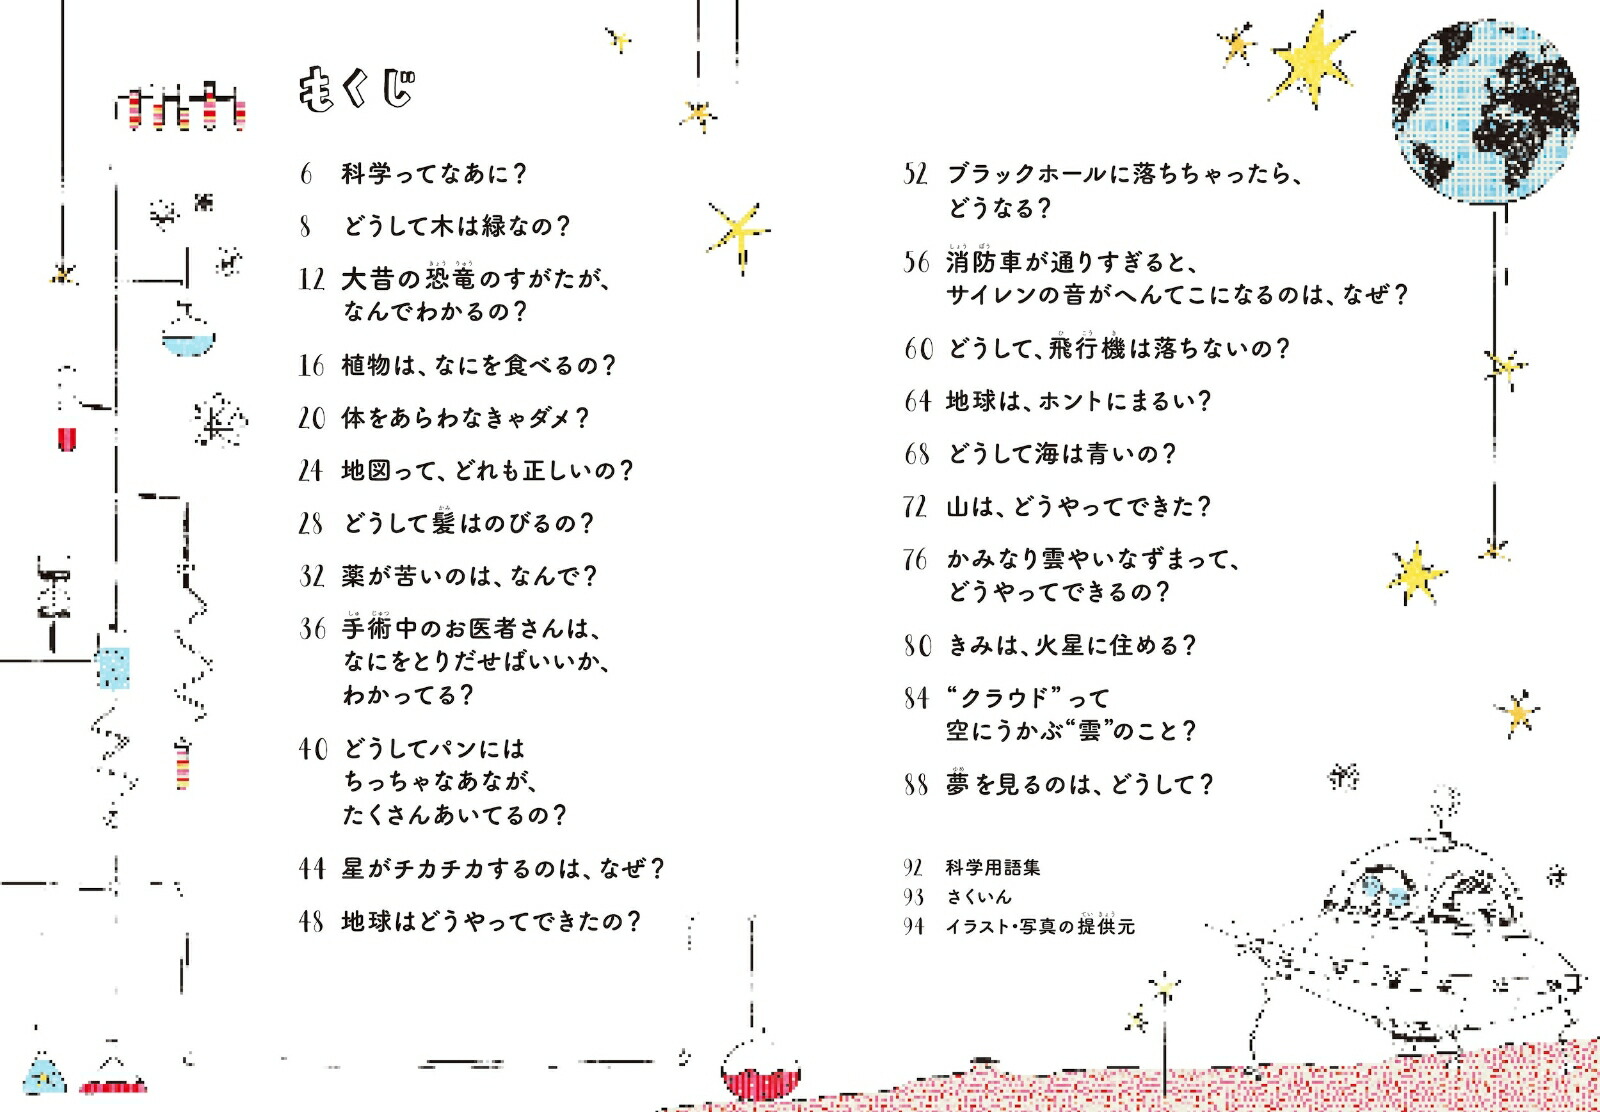 もくじ
6 科学ってなあに？
8 どうして木は緑なの？
12 大昔の恐竜のすがたが、
なんでわかるの？
16 植物は、なにを食べるの？
20 体をあらわなきゃダメ？
24 地図って、どれも正しいの？
28 どうして髪はのびるの？
32 薬が苦いのは、なんで？
36 手術中のお医者さんは、
なにをとりだせばいいか、
わかってる？
40 どうしてパンには
ちっちゃなあなが、
たくさんあいてるの？
44 星がチカチカするのは、なぜ？
48 地球はどうやってできたの？
52 ブラックホールに落ちちゃったら、
どうなる？
56 消防車が通りすぎると、
サイレンの音がへんてこになるのは、なぜ？
60 どうして、飛行機は落ちないの？
64 地球は、ホントにまるい？
68 どうして海は青いの？
72 山は、どうやってできた？
76 かみなり雲やいなずまって、
どうやってできるの？
80 きみは、火星に住める？
84 “クラウド”って
空にうかぶ“雲”のこと？
88 夢を見るのは、どうして？
92 科学用語集
93 さくいん
94 イラスト・写真の提供元